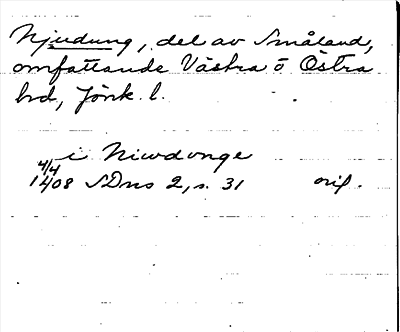 Njudung, del av Småland,
omfattande Västra o Östra
hd, Jönk. l.
i Niwdunge
4/4
1408 SDns 2, s. 31 orig.